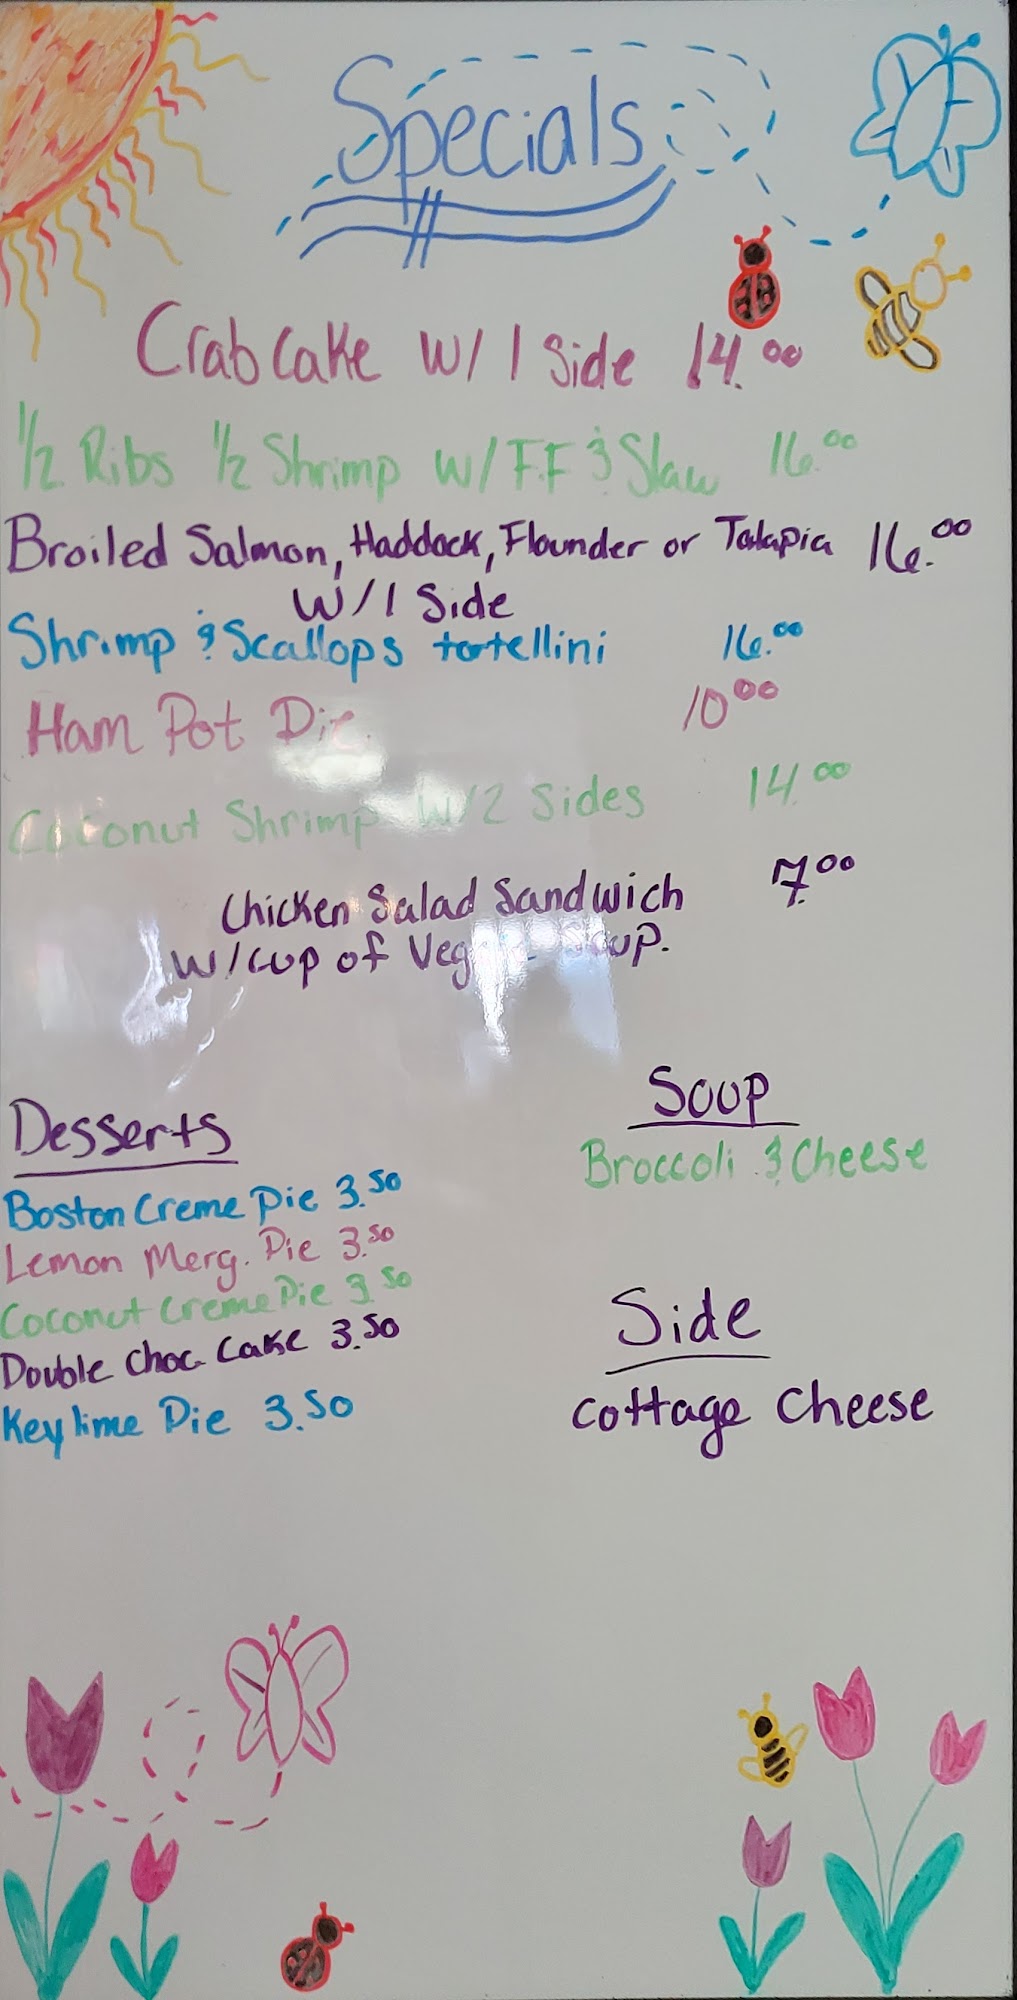 Specials
Crab Cake w/ 1 Side 14.00
1/2 Ribs 1/2 Shrimp w/ F.F & Slaw 16.00
Broiled Salmon, Haddock, Flounder or Talapia 16.00
w/ 1 Side
Shrimp & Scallops tortellini 16.00
Ham Pot Pie 10.00
Coconut Shrimp w/2 Sides 14.00
Chicken Salad Sandwich 7.00
w/cup of Soup.
Desserts
Boston Creme Pie 3.50
Lemon Merg. Pie 3.50
Coconut Creme Pie 3.50
Double Choc Cake 3.50
Key lime Pie 3.50
Soup
Broccoli & Cheese
Side
Cottage Cheese